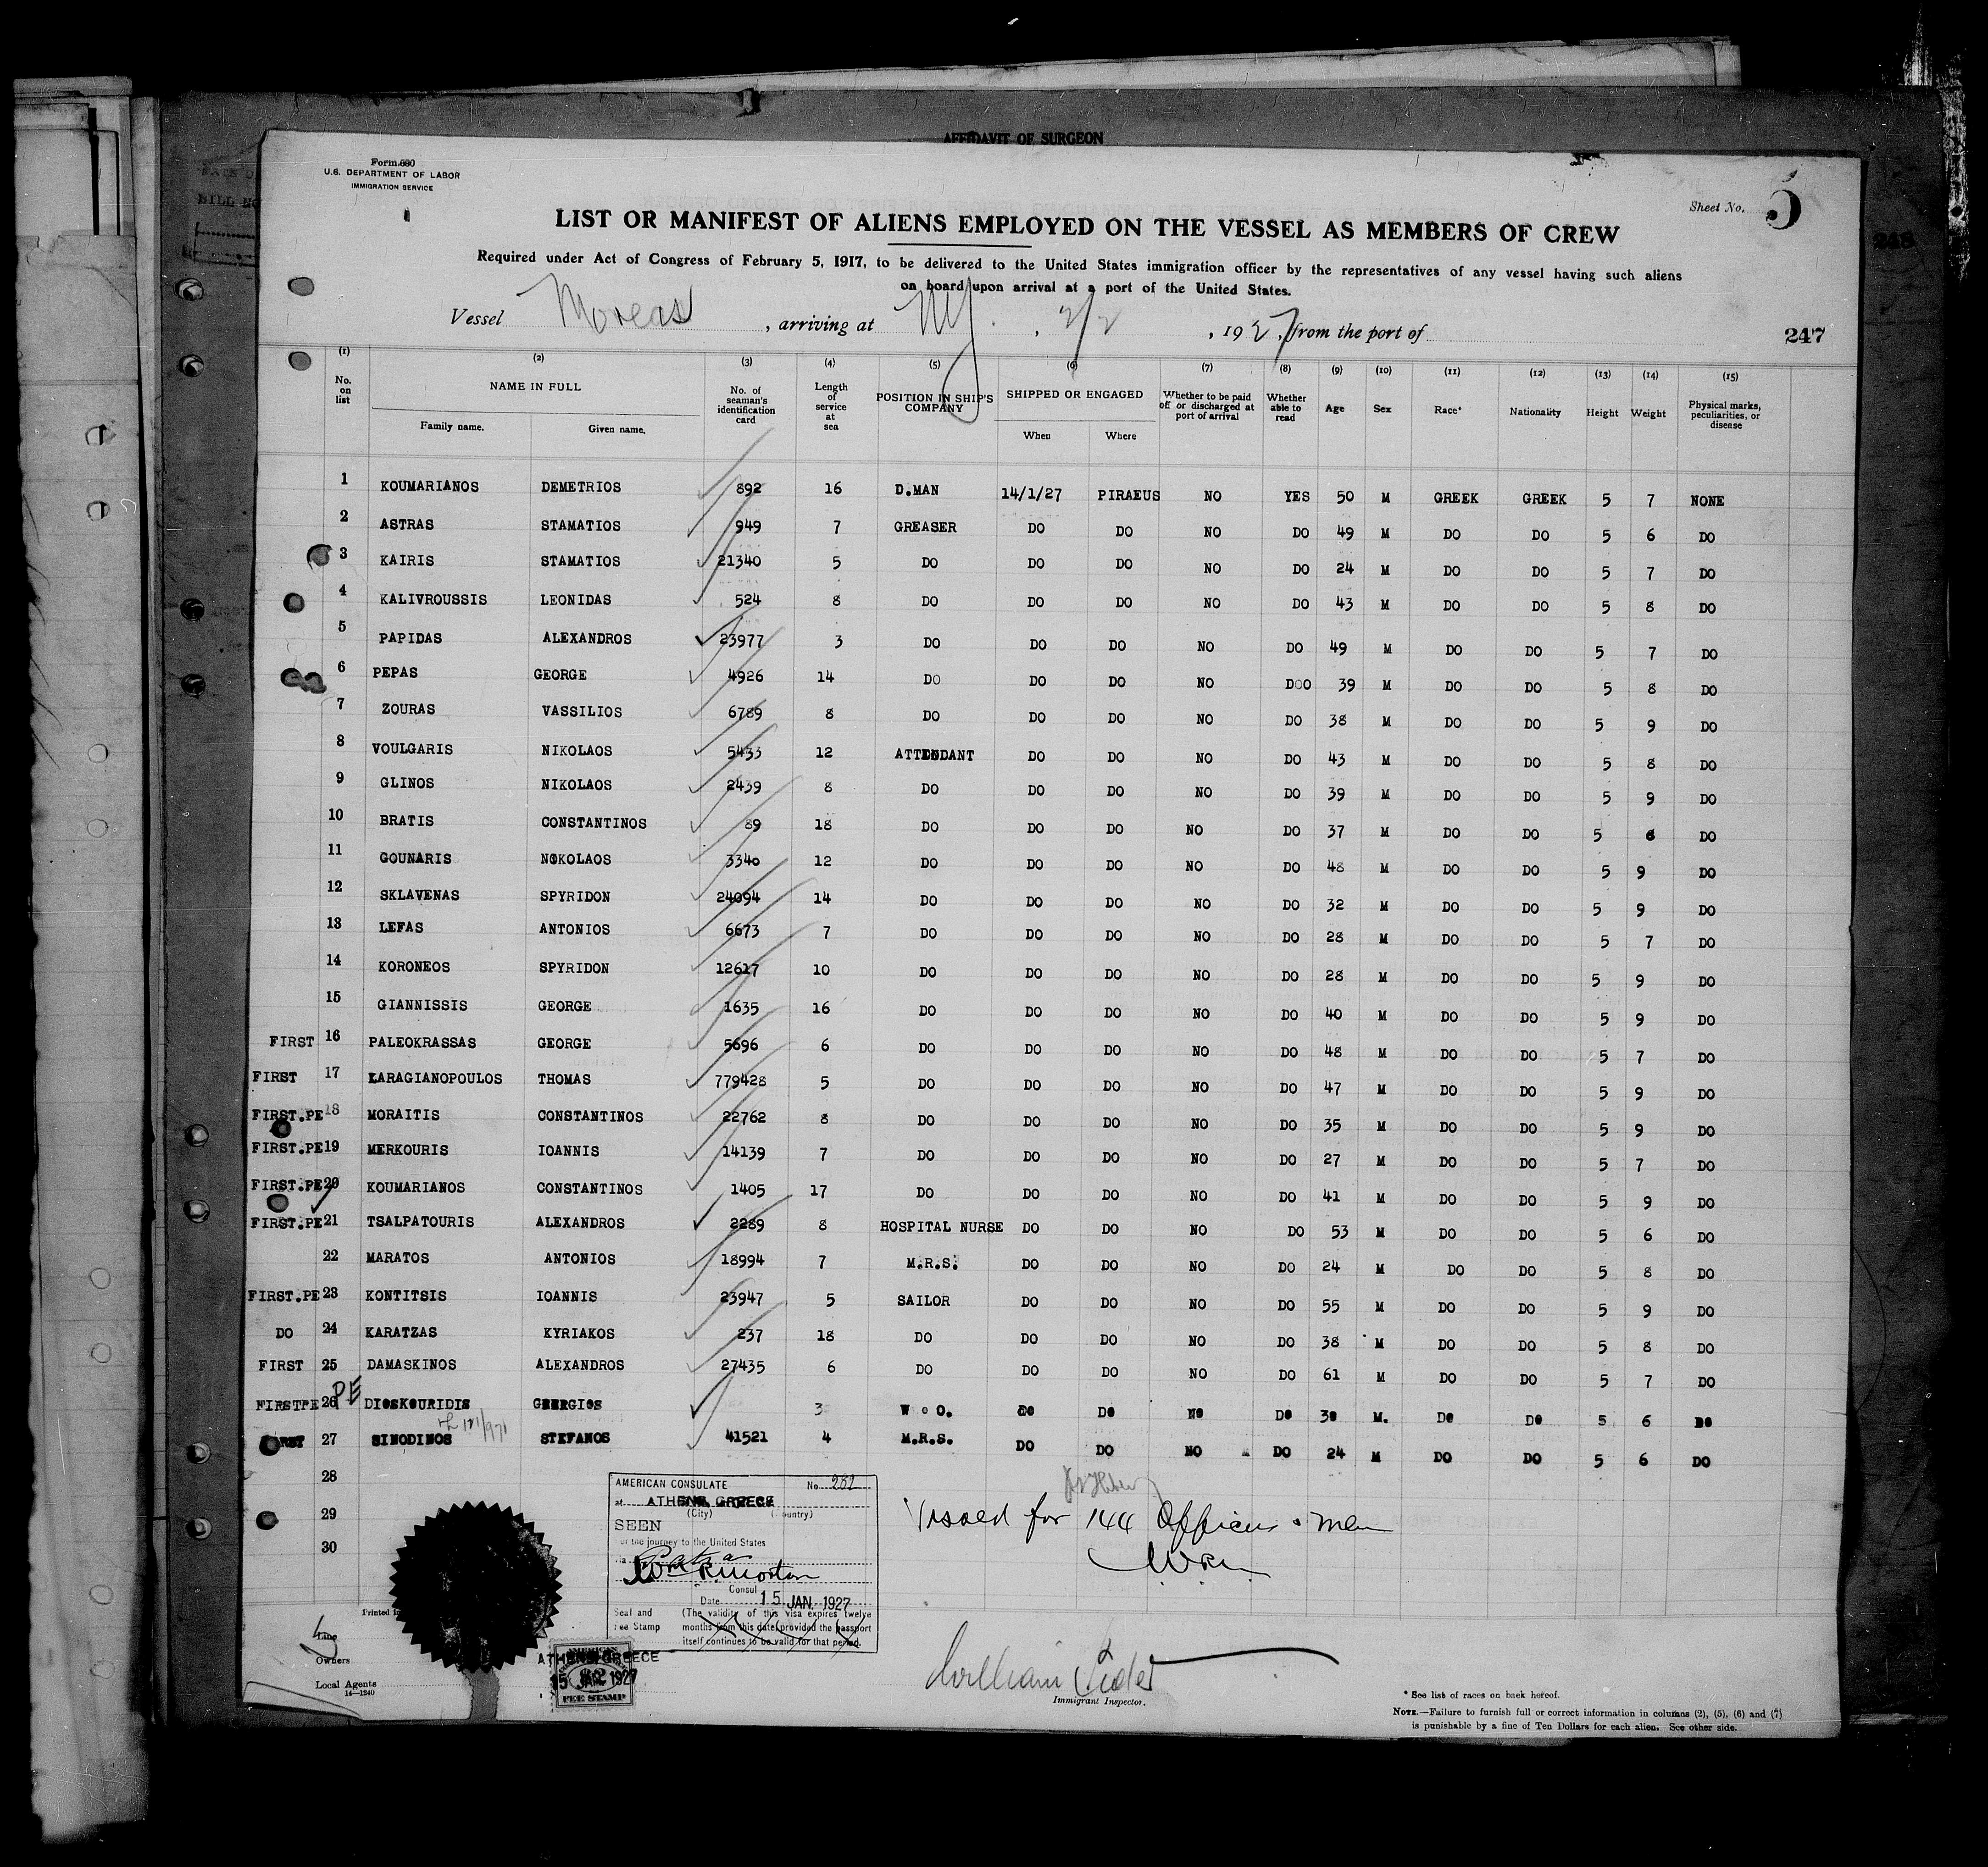 AFFIDAVIT OF SURGEON
Form 680
U.S. DEPARTMENT OF LABOR
IMMIGRATION SERVICE
Sheet No. 5
LIST OR MANIFEST OF ALIENS EMPLOYED ON THE VESSEL AS MEMBERS OF CREW
Required under Act of Congress of February 5, 1917, to be delivered to the United States immigration officer by the representatives of any vessel having such aliens
on board upon arrival at a port of the United States.
Vessel Moreas, arriving at NY., 2/2, 1927, from the port of
247
248
(1) (2) (3) (4) (5) (6) (7) (8) (9) (10) (11) (12) (13) (14) (15)
No. on list NAME IN FULL Family name. Given name. No. of seaman's identification card Length of service at sea POSITION IN SHIP'S COMPANY SHIPPED OR ENGAGED When Where Whether to be paid off or discharged at port of arrival Whether able to read Age Sex Race* Nationality Height Weight Physical marks, peculiarities, or disease
1 KOUMARIANOS DEMETRIOS 892 16 D.MAN 14/1/27 PIRAEUS NO YES 50 M GREEK GREEK 5 7 NONE
2 ASTRAS STAMATIOS 949 7 GREASER DO DO NO DO 49 M DO DO 5 6 DO
3 KAIRIS STAMATIOS 21340 5 DO DO DO NO DO 24 M DO DO 5 7 DO
4 KALIVROUSSIS LEONIDAS 524 8 DO DO DO NO DO 43 M DO DO 5 8 DO
5 PAPIDAS ALEXANDROS 23977 3 DO DO DO NO DO 49 M DO DO 5 7 DO
6 PEPAS GEORGE 4926 14 DO DO DO NO DOO 39 M DO DO 5 8 DO
7 ZOURAS VASSILIOS 6789 8 DO DO DO NO DO 38 M DO DO 5 9 DO
8 VOULGARIS NIKOLAOS 5433 12 ATTENDANT DO DO NO DO 43 M DO DO 5 8 DO
9 GLINOS NIKOLAOS 2439 8 DO DO DO NO DO 39 M DO DO 5 9 DO
10 BRATIS CONSTANTINOS 89 18 DO DO DO NO DO 37 M DO DO 5 6 DO
11 GOUNARIS NOKOLAOS 3340 12 DO DO DO NO DO 48 M DO DO 5 9 DO
12 SKLAVENAS SPYRIDON 24094 14 DO DO DO NO DO 32 M DO DO 5 9 DO
13 LEFAS ANTONIOS 6673 7 DO DO DO NO DO 28 M DO DO 5 7 DO
14 KORONEOS SPYRIDON 12617 10 DO DO DO NO DO 28 M DO DO 5 9 DO
15 GIANNISSIS GEORGE 1635 16 DO DO DO NO DO 40 M DO DO 5 9 DO
FIRST 16 PALEOKRASSAS GEORGE 5696 6 DO DO DO NO DO 48 M DO DO 5 7 DO
FIRST 17 KARAGIANOPOULOS THOMAS 779428 5 DO DO DO NO DO 47 M DO DO 5 9 DO
FIRST.PE 18 MORAITIS CONSTANTINOS 22762 8 DO DO DO NO DO 35 M DO DO 5 9 DO
FIRST.PE 19 MERKOURIS IOANNIS 14139 7 DO DO DO NO DO 27 M DO DO 5 7 DO
FIRST.PE 20 KOUMARIANOS CONSTANTINOS 1405 17 DO DO DO NO DO 41 M DO DO 5 9 DO
FIRST.PE 21 TSALPATOURIS ALEXANDROS 2289 8 HOSPITAL NURSE DO DO NO DO 53 M DO DO 5 6 DO
22 MARATOS ANTONIOS 18994 7 M.R.S. DO DO NO DO 24 M DO DO 5 8 DO
FIRST.PE 23 KONTITSIS IOANNIS 23947 5 SAILOR DO DO NO DO 55 M DO DO 5 9 DO
DO 24 KARATZAS KYRIAKOS 237 18 DO DO DO NO DO 38 M DO DO 5 8 DO
FIRST 25 DAMASKINOS ALEXANDROS 27435 6 DO DO DO NO DO 61 M DO DO 5 7 DO
FIRSTPE 26 PE DIOSKOURIDIS GEORGIOS 3 W.O. do Do No Do 30 M. Do Do 5 6 Do
FIRST 27 SINODINOS STEFANOS 41521 4 M.R.S. DO DO NO DO 24 M DO DO 5 6 DO
28
29
30
AMERICAN CONSULATE No. 282
at ATHENS, GREECE
(City) (Country)
SEEN
For the journey to the United States
Consul
Date 15 JAN. 1927
Seal and Fee Stamp
(The validity of this visa expires twelve
months from this date provided the passport
itself continues to be valid for that period.
Vissed for 144 Officers & men
WRM
ATHENS GREECE
15 JAN. 1927
AMERICAN
$2
FEE STAMP
Printed
Line
Owners
Local Agents
14—1240
William
Immigrant Inspector.
* See list of races on back hereof.
NOTE.—Failure to furnish full or correct information in columns (2), (5), (6) and (7)
is punishable by a fine of Ten Dollars for each alien. See other side.